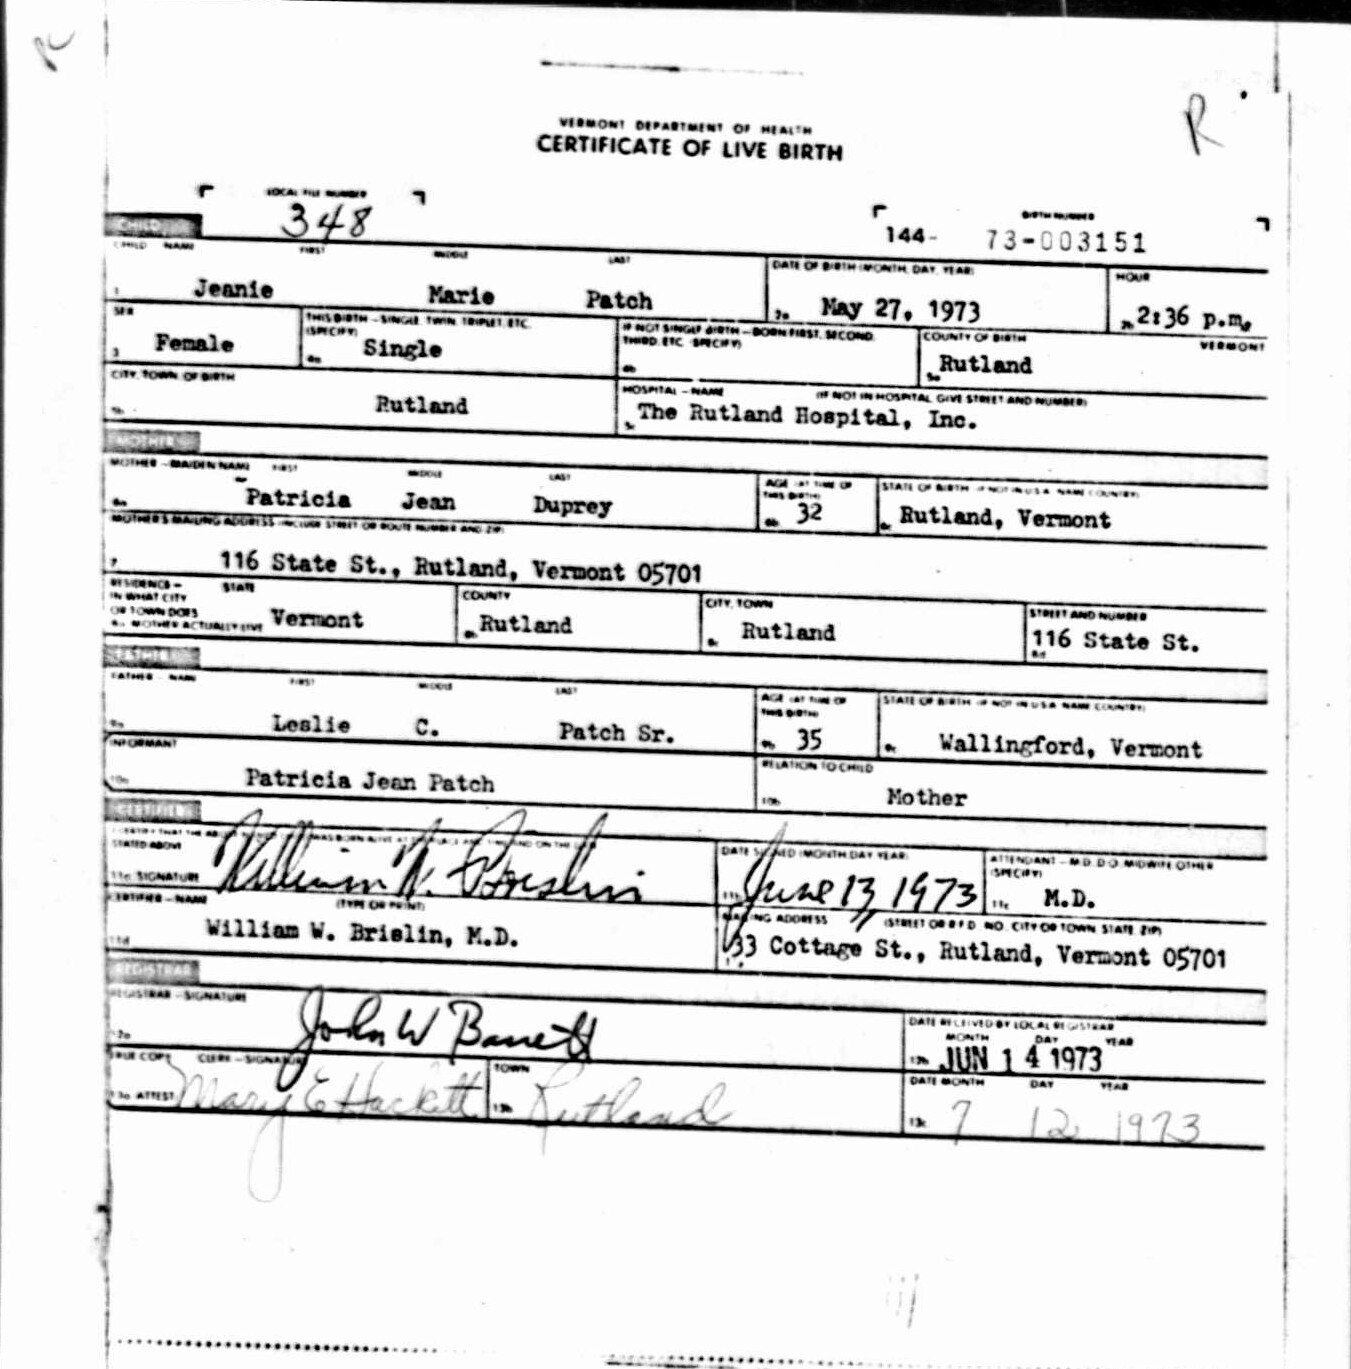 R
VERMONT DEPARTMENT OF HEALTH
CERTIFICATE OF LIVE BIRTH
R
LOCAL FILE NUMBER
348
BIRTH NUMBER
144- 73-003151
CHILD
CHILD NAME FIRST MIDDLE LAST
1 Jeanie Marie Patch
DATE OF BIRTH (MONTH, DAY, YEAR)
2a May 27, 1973
HOUR
2b 2:36 p.m.
SEX
3 Female
THIS BIRTH - SINGLE, TWIN, TRIPLET, ETC.
(SPECIFY)
4a Single
IF NOT SINGLE BIRTH - BORN FIRST, SECOND,
THIRD, ETC. (SPECIFY)
4b
COUNTY OF BIRTH VERMONT
5a Rutland
CITY, TOWN, OF BIRTH
5b Rutland
HOSPITAL - NAME (IF NOT IN HOSPITAL, GIVE STREET AND NUMBER)
5c The Rutland Hospital, Inc.
MOTHER
MOTHER - MAIDEN NAME FIRST MIDDLE LAST
6a Patricia Jean Duprey
AGE (AT TIME OF
THIS BIRTH)
6b 32
STATE OF BIRTH (IF NOT IN U.S.A. NAME COUNTRY)
6c Rutland, Vermont
MOTHER'S MAILING ADDRESS (INCLUDE STREET OR ROUTE NUMBER AND ZIP)
7 116 State St., Rutland, Vermont 05701
RESIDENCE - STATE
IN WHAT CITY
OR TOWN DOES
8a MOTHER ACTUALLY LIVE Vermont
COUNTY
8b Rutland
CITY, TOWN
8c Rutland
STREET AND NUMBER
116 State St.
8d
FATHER
FATHER - NAME FIRST MIDDLE LAST
9a Leslie C. Patch Sr.
AGE (AT TIME OF
THIS BIRTH)
9b 35
STATE OF BIRTH (IF NOT IN U.S.A. NAME COUNTRY)
9c Wallingford, Vermont
INFORMANT
10a Patricia Jean Patch
RELATION TO CHILD
10b Mother
CERTIFIER
I CERTIFY THAT THE WAS BORN ALIVE AT PLACE AND TIME AND ON THE
STATED ABOVE
11a SIGNATURE William W. Brislin
DATE SIGNED (MONTH, DAY, YEAR)
11b June 13, 1973
ATTENDANT - M.D. D.O. MIDWIFE OTHER
(SPECIFY)
11c M.D.
CERTIFIER - NAME (TYPE OR PRINT)
11d William W. Brislin, M.D.
MAILING ADDRESS (STREET OR R.F.D. NO. CITY OR TOWN STATE ZIP)
33 Cottage St., Rutland, Vermont 05701
REGISTRAR
REGISTRAR - SIGNATURE
12a John W Barrett
DATE RECEIVED BY LOCAL REGISTRAR
MONTH DAY YEAR
12b JUN 14 1973
TRUE COPY CLERK - SIGNATURE
13a ATTEST: Mary E Hackett
TOWN
13b Rutland
DATE MONTH DAY YEAR
13c 7 12 1973